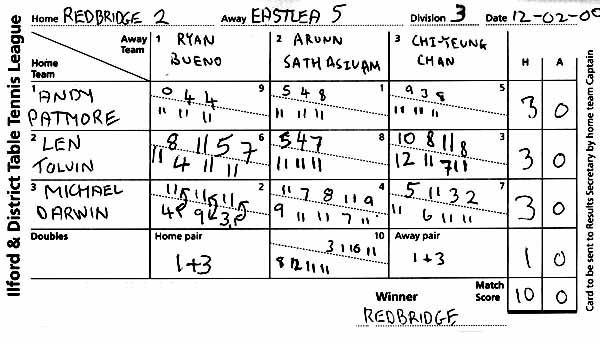 Home REDBRIDGE 2 Away EASTLEA 5 Division 3 Date 12-02-00
Ilford & District Table Tennis League
Away Team
Home Team
1 RYAN BUENO
2 ARUNN SATHASIVAM
3 CHI-YEUNG CHAN
H A
1 ANDY PATMORE
9
0 4 4
11 11 11
1
5 4 8
11 11 11
5
9 3 8
11 11 11
3 0
2 LEN TOLVIN
6
8 11 5 7
11 4 11 11
8
5 4 7
11 11 11
3
10 8 11 8
12 11 7 11
3 0
3 MICHAEL DARWIN
2
4
11 7 8 11 9
9 11 11 7 11
7
5 11 3 2
11 6 11 11
3 0
Doubles
Home pair
1+3
10
3 11 16 11
8 12 11 11
Away pair
1+3
1 0
Winner
REDBRIDGE
Match Score
10 0
Card to be sent to Results Secretary by home team Captain